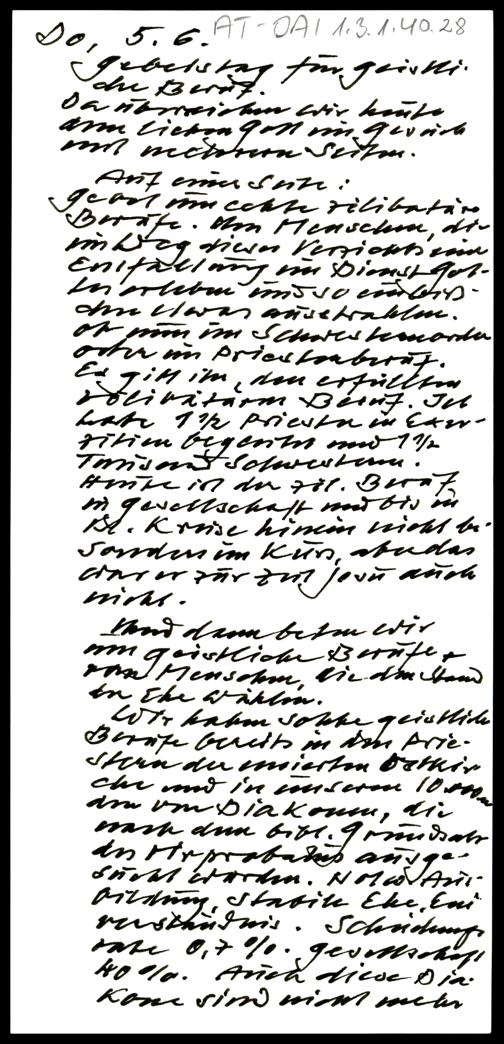 AT-OAI 1.3.1.40.28
Do, 5.6.
Gebetstag für geistli-
che Beruf.
Da überreichen wir heute
dem lieben Gott ein Gesuch
mit mehreren Seiten.
Auf einer Seite:
Gebet um echte zölibatäre
Berufe. Um Menschen, die
im Weg dieses Verzichts eine
Entfaltung im Dienst Got-
tes erleben und so ein biß-
chen etwas ausstrahlen.
ob nun im Schwesternorden
oder im Priesterberuf.
Es gibt ihn, den erfüllten
zölibatären Beruf. Ich
habe 1 1/2 Priester in Exer-
zitien begleitet und 1 1/2
Tausend Schwestern.
Heute ist der zöl. Beruf
in Gesellschaft und bis in
kl. Kreise hinein nicht be-
sonders im Kurs, aber das
war er zur Zeit Jesu auch
nicht.
Und dann beten wir
um geistliche Berufe
von Menschen, die den Stand
der Ehe wählen.
Wir haben solche geistliche
Berufe bereits in den Prie-
stern der unierten Ostkir-
che und in unseren 10.000
den von Diakonen, die
nach dem bibl. Grundsatz
des Vir probatus ausge-
sucht wurden. Aus-
bildung, stabile Ehe, Ein
verständnis. Scheidungs
rate 0,7 %. Gesellschaft
40 %. Auch diese Dia-
kone sind nicht mehr